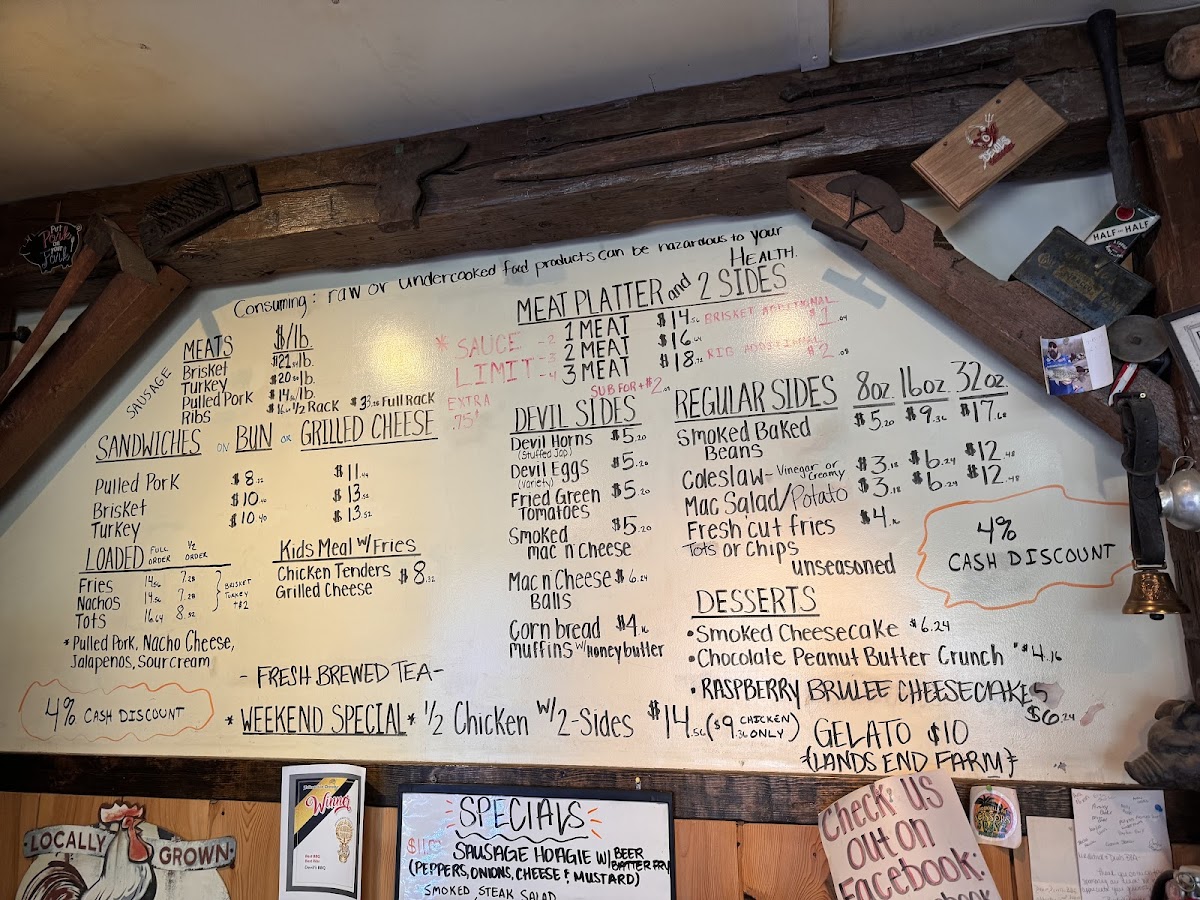 Consuming: raw or undercooked food products can be hazardous to your
HEALTH.
MEATS $/lb.
Brisket $21 lb.
Turkey $20 lb.
Pulled Pork $14 lb.
Ribs 1/2 Rack $33 Full Rack
SAUSAGE
SANDWICHES ON BUN or GRILLED CHEESE
Pulled Pork $8 $11
Brisket $10 $13.52
Turkey $10.40 $13.52
LOADED FULL ORDER 1/2 ORDER
Fries 14.56 7.28
Nachos 14.56 7.28
Tots 16.64 8.32
BRISKET
TURKEY
+$2
*Pulled Pork, Nacho Cheese,
Jalapenos, Sour cream
4% CASH DISCOUNT
Kids Meal w/Fries
Chicken Tenders $8.32
Grilled Cheese
- FRESH BREWED TEA -
*WEEKEND SPECIAL* 1/2 Chicken w/2-Sides $14.56 ($9.36 CHICKEN ONLY)
MEAT PLATTER and 2 SIDES
1 MEAT $14.56 BRISKET ADDITIONAL $1.04
2 MEAT $16.64
3 MEAT $18.72 RIB ADDITIONAL $2.08
SUB FOR +$2
* SAUCE - 2
LIMIT - 3
- 4
EXTRA
.75¢
DEVIL SIDES
Devil Horns $5.20
(Stuffed Jap)
Devil Eggs $5.20
(variety)
Fried Green $5.20
Tomatoes
Smoked $5.20
mac n Cheese
Mac n' Cheese $6.24
Balls
Corn bread $4.16
muffins w/Honey butter
REGULAR SIDES 8oz. 16oz. 32oz.
Smoked Baked $5.20 $9.36 $17.68
Beans
Coleslaw - Vinegar or Creamy $3.18 $6.24 $12.48
Mac Salad/Potato $3.18 $6.24 $12.48
Fresh cut fries $4.16
Tots or Chips
unseasoned
4%
CASH DISCOUNT
DESSERTS
•Smoked Cheesecake $6.24
•Chocolate Peanut Butter Crunch $4.16
•RASPBERRY BRULEE CHEESECAKE
$6.24
GELATO $10
{LANDS END FARM}
Put
Pork
on
your
Fork
HALF AND HALF
LOCALLY GROWN
Winner
SPECIALS
SAUSAGE HOAGIE W/ BEER BATTER FRY
(PEPPERS, ONIONS, CHEESE & MUSTARD)
SMOKED STEAK SALAD
Check us
out on
Facebook: